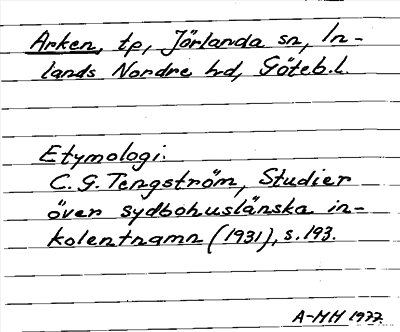 Arken, tp, Jörlanda sn, In-
lands Nordre hd, Göteb.l.
Etymologi.
C. G. Tengström, Studier
över sydbohuslänska in-
kolentnamn (1931), s. 193.
A-MH 1977.